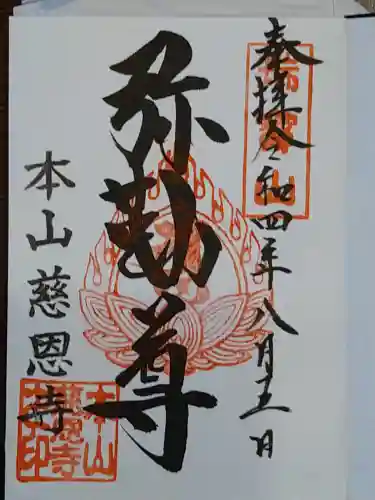 奉拝 令和四年八月五日
瑞宝山
弥勒尊
本山慈恩寺
本山慈恩寺